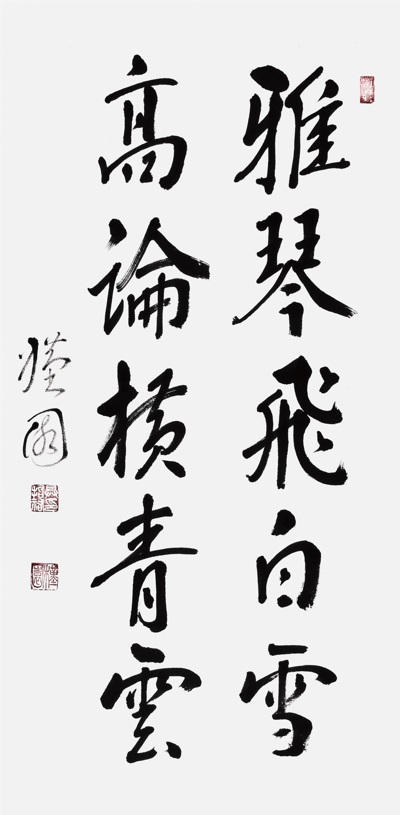 雅琴飛白雪
高論横青雲